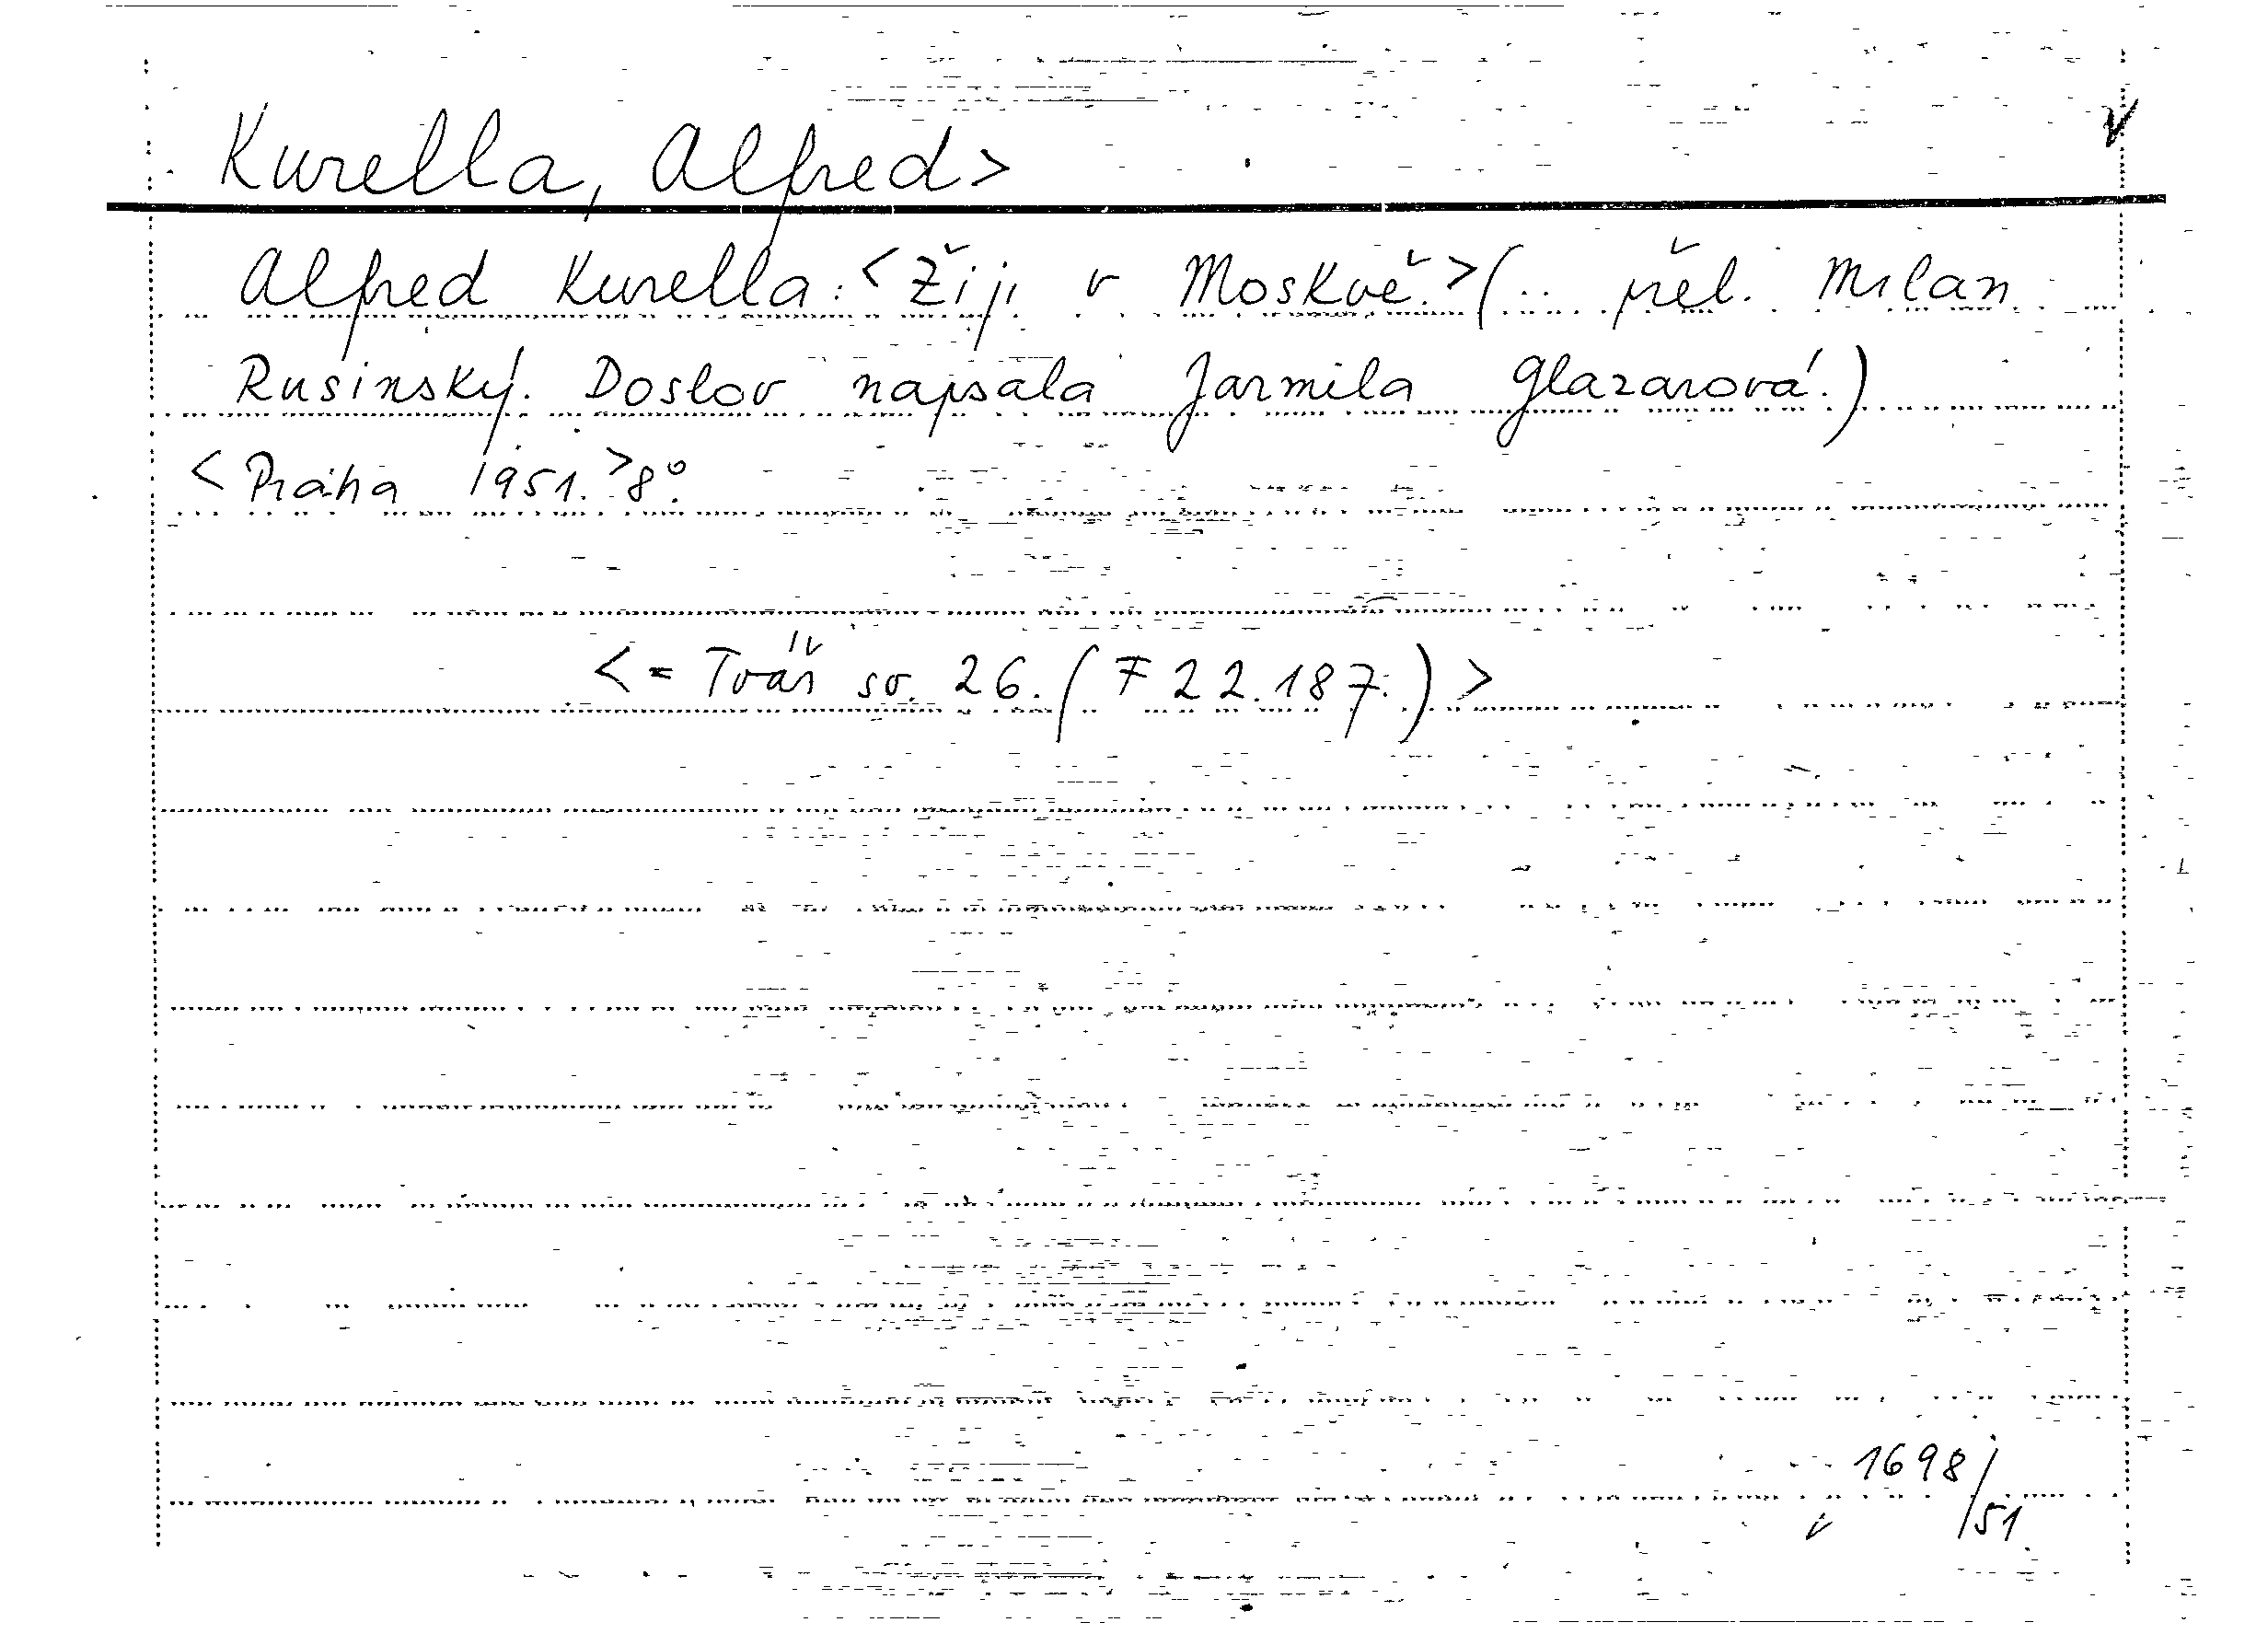 Kurella, Alfred>
Alfred Kurella: <Žiji v Moskvě.> (.. přel. Milan
Rusinský. Doslov napsala Jarmila Glazarová.)
<Praha 1951.> 8°.
<= Tvář sv. 26. (F 22.187.)>
1698/51